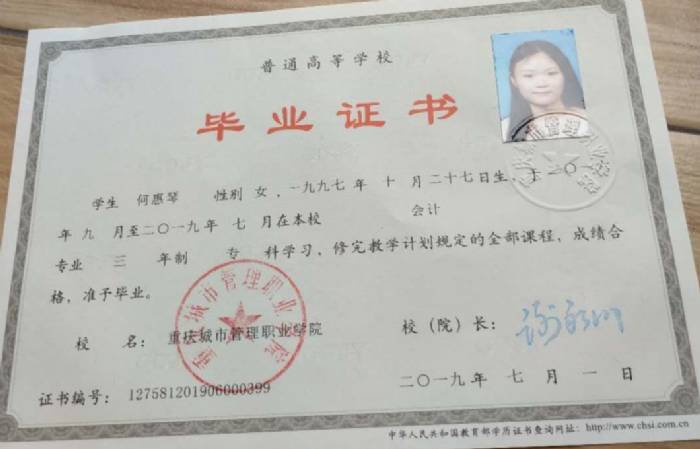 普通高等学校
毕业证书
学生 何惠琴 性别 女，一九九七年 十 月二十七日生，于二〇一
年 九 月至二〇一九年 七 月在本校 会计
专业 三 年制 专 科学习，修完教学计划规定的全部课程，成绩合
格，准予毕业。
校 名： 重庆城市管理职业学院
校（院）长：
证书编号： 127581201906000399
二〇一九年 七 月 一 日
中华人民共和国教育部学历证书查询网址：http://www.chsi.com.cn